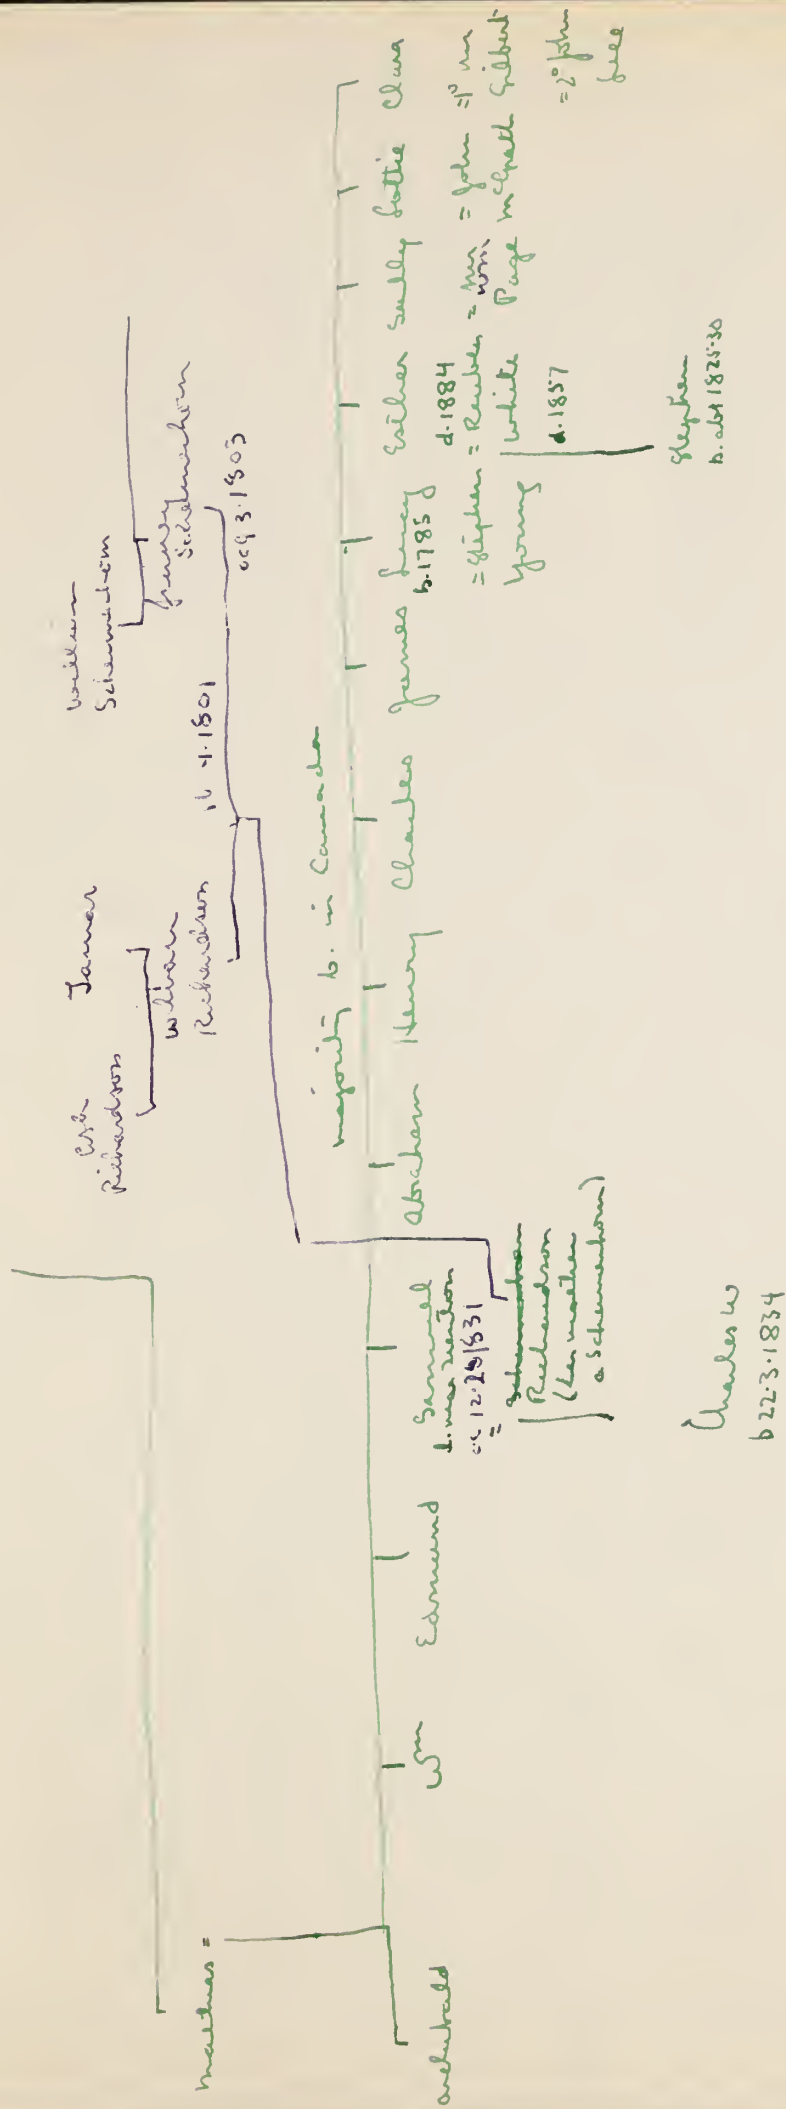 William
Schermerhorn
Asa Tamar
Richardson
William
Richardson
Jenny
Schermerhorn
16 4.1801
ccq 3.1803
Matthias =
majority b. in Canada
Archibald
Wm
Edmund
Samuel
b. near
cc 12.28 1831
=
Richardson
(her mother
a Schermerhorn)
Abraham
Henry
Charles
James
Lucy
b.1785
= Stephen
Young
Esther
d.1884
= Reuben
White
d.1857
Sally
= Wm
Page
Lottie
= John
McGrath
Clara
=1° Wm
Gilbert
=2° John
Stephen
b. abt 1825-30
Charles W
b 22.3.1834